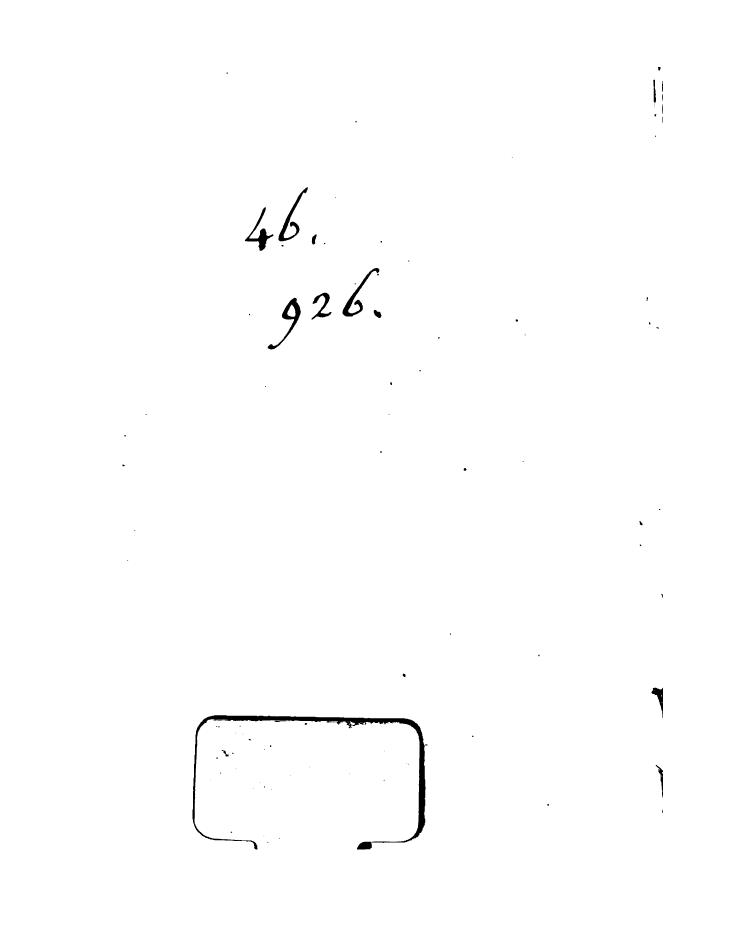 46.
926.